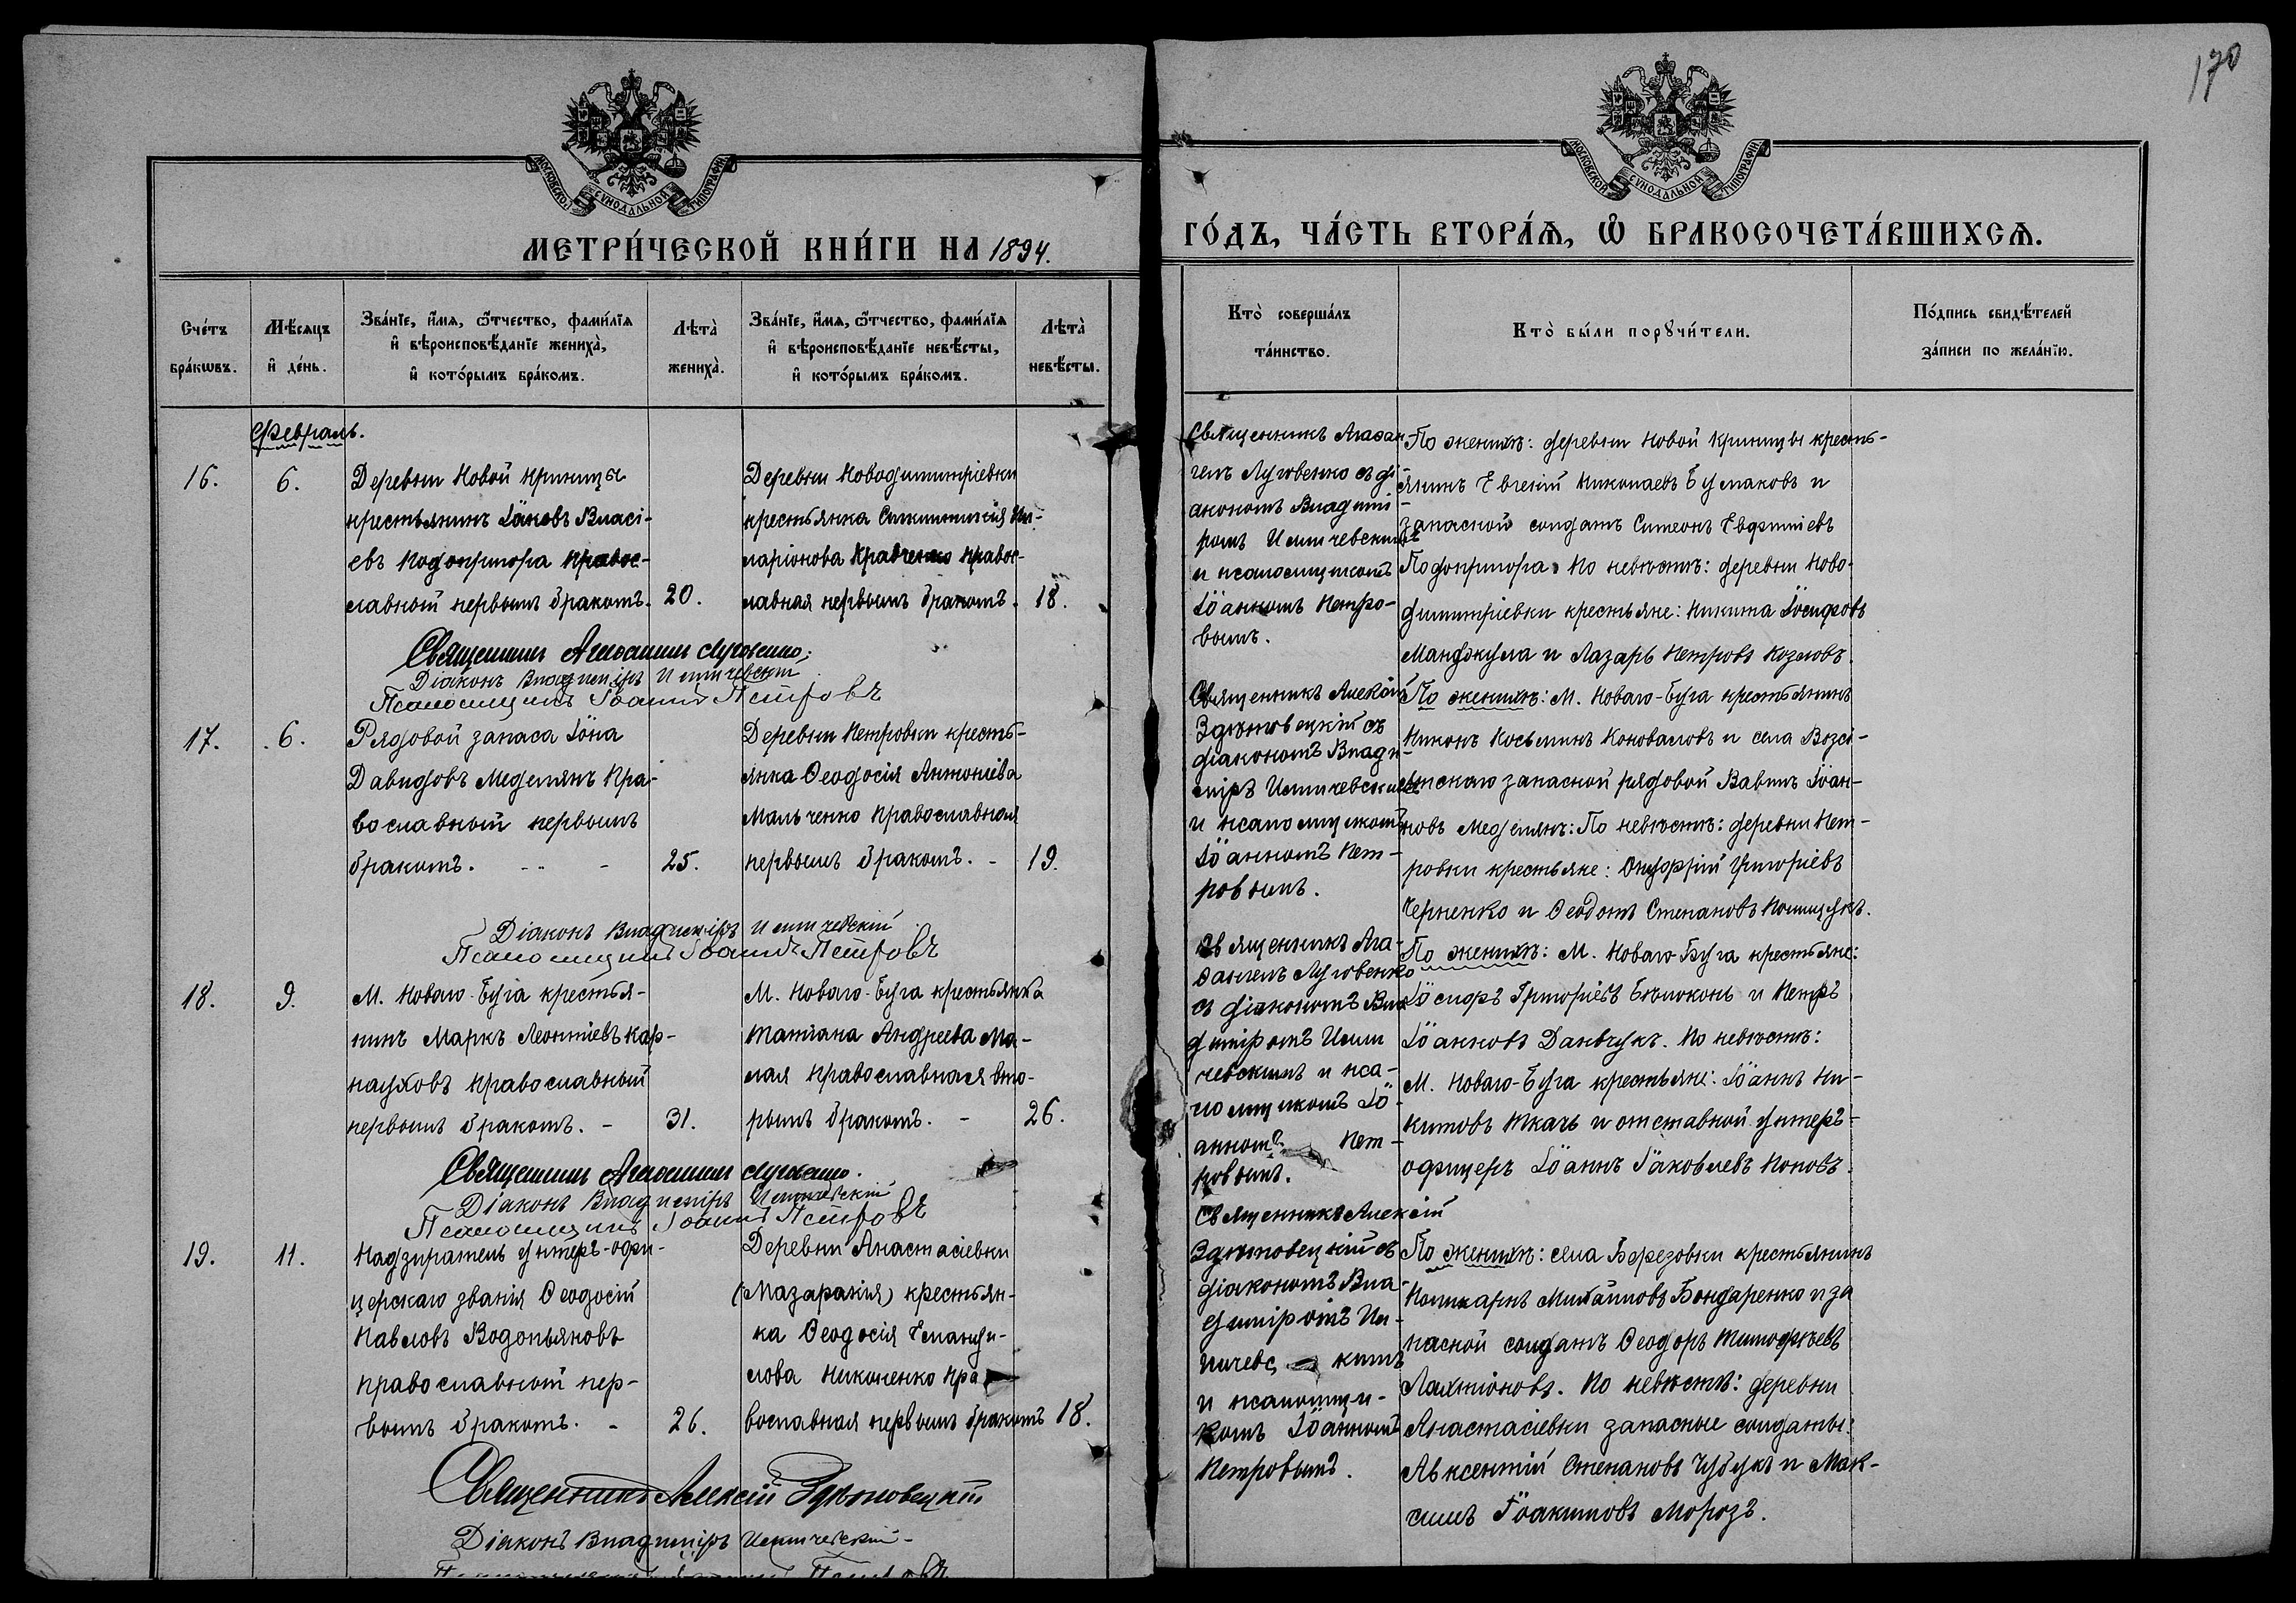 170
МОСКОВСКОЙ СѴНОДАЛЬНОЙ ТИПОГРАФІИ
МОСКОВСКОЙ СѴНОДАЛЬНОЙ ТИПОГРАФІИ
МЕТРИ́ЧЕСКОЙ КНИ́ГИ НА 1894.
ГО́ДЪ, ЧА́СТЬ ВТОРА́Я, Ѿ БРАКОСОЧЕТА́ВШИХСЯ.
Сче́тъ
бра́кѡвъ.
Мѣ́сяцъ
и҆ де́нь.
Зва́нїе, и҆́мя, ѻ҆́тчество, фами́лїя
и҆ вѣроисповѣ́данїе жениха̀,
и҆ кото́рымъ бра́комъ.
Лѣта̀
жениха̀.
Зва́нїе, и҆́мя, ѻ҆́тчество, фами́лїя
и҆ вѣроисповѣ́данїе невѣ́сты,
и҆ кото́рымъ бра́комъ.
Лѣта̀
невѣ́сты.
Кто̀ соверша́лъ
та́инство.
Кто̀ бы́ли порꙋчи́тели.
По́дпись свидѣ́телей
за́писи по жела́нїю.
Февраль.
16.
6.
Деревни Новой Криницы
крестьянинъ Іаковъ Власі-
евъ Подопригора Правос-
лавный первымъ бракомъ.
20.
Деревни Новодимитріевки
крестьянка Ил-
ларіонова Кравченко Правос-
лавная первымъ бракомъ.
18.
Священникъ Агаѳан-
гелъ Луговенко съ ді-
акономъ Владимі-
ромъ
и псаломщикомъ
Іоанномъ Петро-
вымъ.
По женихѣ: деревни Новой Криницы кресть-
янинъ Евгеній Николаевъ Бумаковъ и
запасной солдатъ Симеонъ Евфиміевъ
Подопригора. По невѣстѣ: деревни Ново-
димитріевки крестьяне: Никита Іосифовъ
Манджула и Лазарь Петровъ Козловъ.
Священникъ Агаѳангелъ Луговенко.
Діаконъ Владиміръ
Псаломщикъ Іоаннъ Петровъ
17.
6.
Рядовой запаса Іона
Давидовъ Медемянъ Пра-
вославный первымъ
бракомъ.
25.
Деревни Петровки кресть-
янка Ѳеодосія Антоніева
Мальченко Православная
первымъ бракомъ.
19.
Священникъ Алексій
Здѣтовецкій съ
діакономъ Влади-
міръ
и псаломщикомъ
Іоанномъ Пет-
ровымъ.
По женихѣ: М. Новаго-Буга крестьянинъ
Никонъ Косьминъ Коноваловъ и села Возсі-
ятскаго запасной рядовой Вавилъ Іоан-
новъ Медемянъ: По невѣстѣ: деревни Пет-
ровки крестьяне: Онуфрій Григоріевъ
Черненко и Ѳеодотъ Степановъ Полищукъ.
Діаконъ Владиміръ
Псаломщикъ Іоаннъ Петровъ
18.
9.
М. Новаго-Буга крестья-
нинъ Маркъ Леонтіевъ Кар-
науховъ православный
первымъ бракомъ.
31.
М. Новаго-Буга крестьянка
Татіана Андреева Ма-
лая православная вто-
рымъ бракомъ.
26.
Священникъ Ага-
ѳангелъ Луговенко
съ діакономъ Вла-
диміромъ
и пса-
ломщикомъ Іо-
анномъ Пет-
ровымъ.
По женихѣ: М. Новаго-Буга крестьяне:
Іосифъ Григоріевъ Бѣлоконь и Петръ
Іоанновъ Данвчукъ. По невѣстѣ:
М. Новаго-Буга крестьяне: Іоаннъ Ни-
китовъ Ткачъ и отставной унтеръ-
офицеръ Іоаннъ Іаковлевъ Поповъ.
Священникъ Агаѳангелъ Луговенко.
Діаконъ Владиміръ
Псаломщикъ Іоаннъ Петровъ
19.
11.
Надзиратель унтеръ-офи-
церскаго званія Ѳеодосій
Павловъ Водопьяновъ
православный пер-
вымъ бракомъ.
26.
Деревни Анастасіевки
(Мазаракія) крестьян-
ка Ѳеодосія Емануи-
лова Никоненко Пра-
вославная первымъ бракомъ
18.
Священникъ Алексій
Здѣтовецкій съ
діакономъ Вла-
диміромъ
и псаломщи-
комъ Іоанномъ
Петровымъ.
По женихѣ: села Березовки крестьянинъ
Поликарпъ Михаиловъ Бондаренко и за
пасной солдатъ Ѳеодоръ Тимофѣевъ
Лахтіоновъ. По невѣстѣ: деревни
Анастасіевки запасные солдаты:
Авксентій Степановъ Чубукъ и Мак-
симъ Іоакимовъ Морозъ.
Священникъ Алексій Здѣтовецкій
Діаконъ Владиміръ